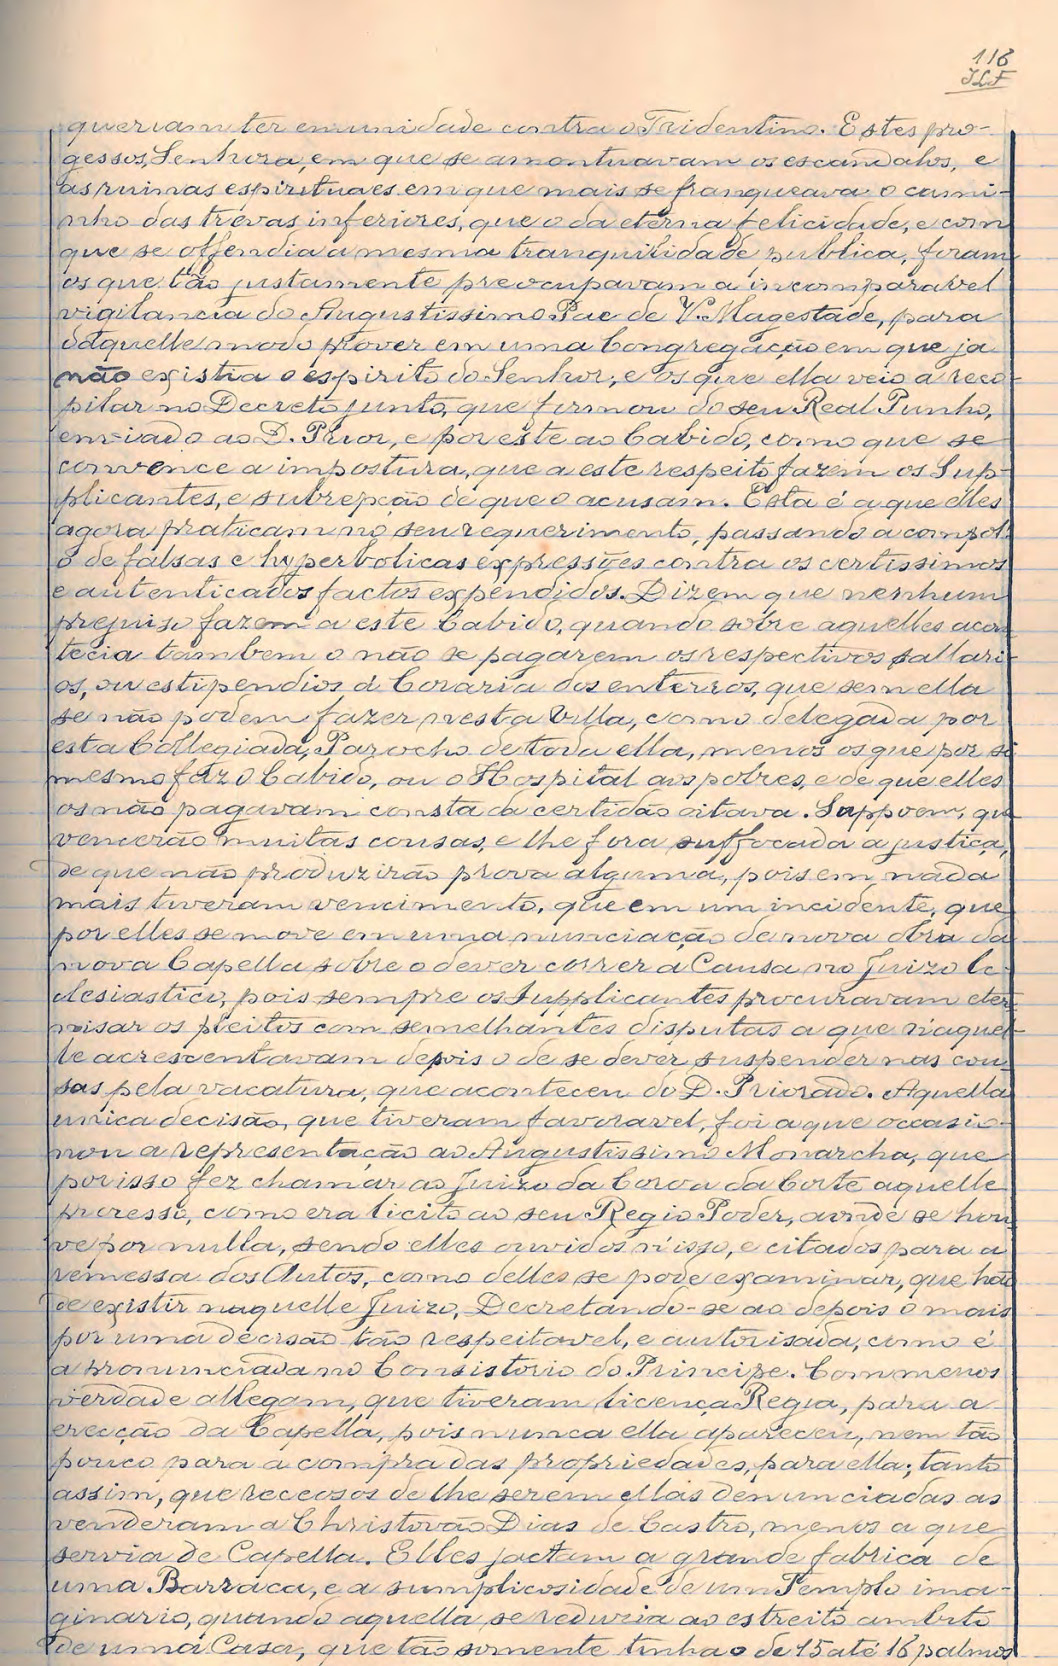 116
J.L.F
queriam ter emmunidade contra o Tridentino. Estes pro-
gessos, Senhora, em que se amontuavam os escandalos, e
as ruinas espirituaes em que mais se franqueava o cami-
nho das trevas inferiores, que o da eterna felicidade, e com
que se offendia a mesma tranquilidade publica, foram
os que tão justamente preocupavam a incomparavel
vigilancia do Augustissimo Pae de V. Magestade, para
d'aquelle modo prover em uma Congregação em que ja
não existia o espirito do Senhor; e os que ella veio a reco-
pilar no Decreto junto, que firmou do seu Real Punho,
enviado ao D. Prior, e por este ao Cabido, como que se
convence a impostura, que a este respeito fazem os Sup-
plicantes, e subrepção de que o acusam. Esta é a que elles
agora praticam no seu requerimento, passando a compol-
o de falsas e hyperbolicas expressões contra os certissimos
e autenticados factos expendidos. Dizem que nenhum
prejuiso fazem a este Cabido, quando sobre aquelles acon-
tecia tambem o não se pagarem os respectivos sallari-
os, ou estipendios á Coraria dos enterros, que sem ella
se não podem fazer nesta Villa, como delegada por
esta Collegiada, Parocho de toda ella, menos os que por si
mesmo fáz o Cabido, ou o Hospital aos pobres, e de que elles
os não pagavam consta da certidão oitava. Suppoem, que
vencerão muitas cousas, e lhe fora suffocada a justiça,
de que não produzirão prova alguma, pois em nada
mais tiveram vencimento, que em um incidente, que
por elles se move em uma nunciação de nova obra da
nova Capella sobre o dever correr a Causa no Juizo Ec-
clesiastico, pois sempre os Supplicantes procuravam eter-
nisar os pleitos com semelhantes disputas a que n'aquel-
le acrescentavam depois o de se dever suspender nas cou-
sas pela vacatura, que aconteceu do D. Priorado. Aquella
unica decisão, que tiveram favoravel, foi a que occasio-
nou a representação ao Augustissimo Monarcha, que
por isso fez chamar ao Juizo da Coroa da Corte aquelle
processo, como era licito ao seu Regio Poder, aonde se hou-
ve por nulla, sendo elles ouvidos n'isso, e citados para a
remessa dos Autos, como delles se pode examinar, que hão
de existir naquelle Juizo, Decretando-se ao depois o mais
por uma decisão tão respeitavel, e autorisada, como é
a pronunciada no Consistorio do Principe. Com menos
verdade allegam, que tiveram licença Regia, para a
erecção da Capella, pois nunca ella appareceu, nem tão
pouco para a compra das propriedades, para ella; tanto
assim, que receosos de lhe serem ellas denunciadas as
venderam a Christovão Dias de Castro, menos a que
servia de Capella. Elles jactam a grande fabrica de
uma Barraca, e a sumplicosidade de um Templo ima-
ginario, quando aquella se reduzia ao estreito ambito
de uma Casa, que tão somente tinha o de 15 até 16 palmos